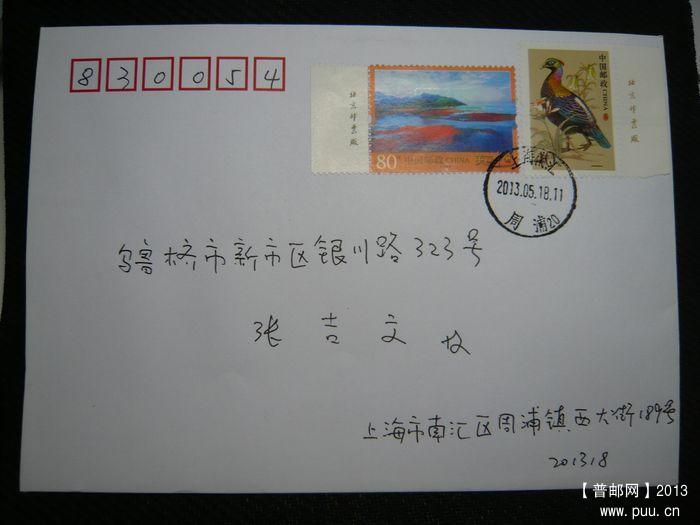 830054
北京邮票厂
80 中国邮政 CHINA
中国邮政 CHINA
北京邮票厂
上海
2013.05.18.11
周浦20
乌鲁桥市新市区银川路323号
张吉文收
上海市南汇区周浦镇西大街189号
201318
【普邮网】2013
www.puu.cn